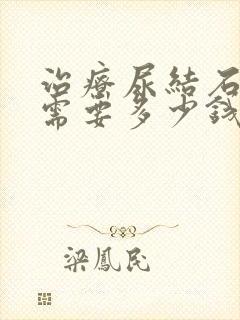 治療尿結石
需要多少錢
梁鳳民